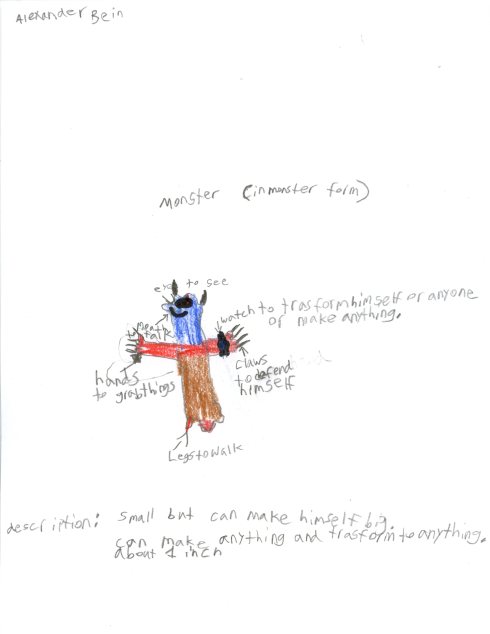 Alexander Bein
Monster (in monster form)
eye to see
watch to trasform himself or anyone
or make anything.
to talk
hands
to grab things
claws
to defend
himself
Legs to walk
description: small but can make himself big.
can make anything and trasform to anything.
about 1 inch